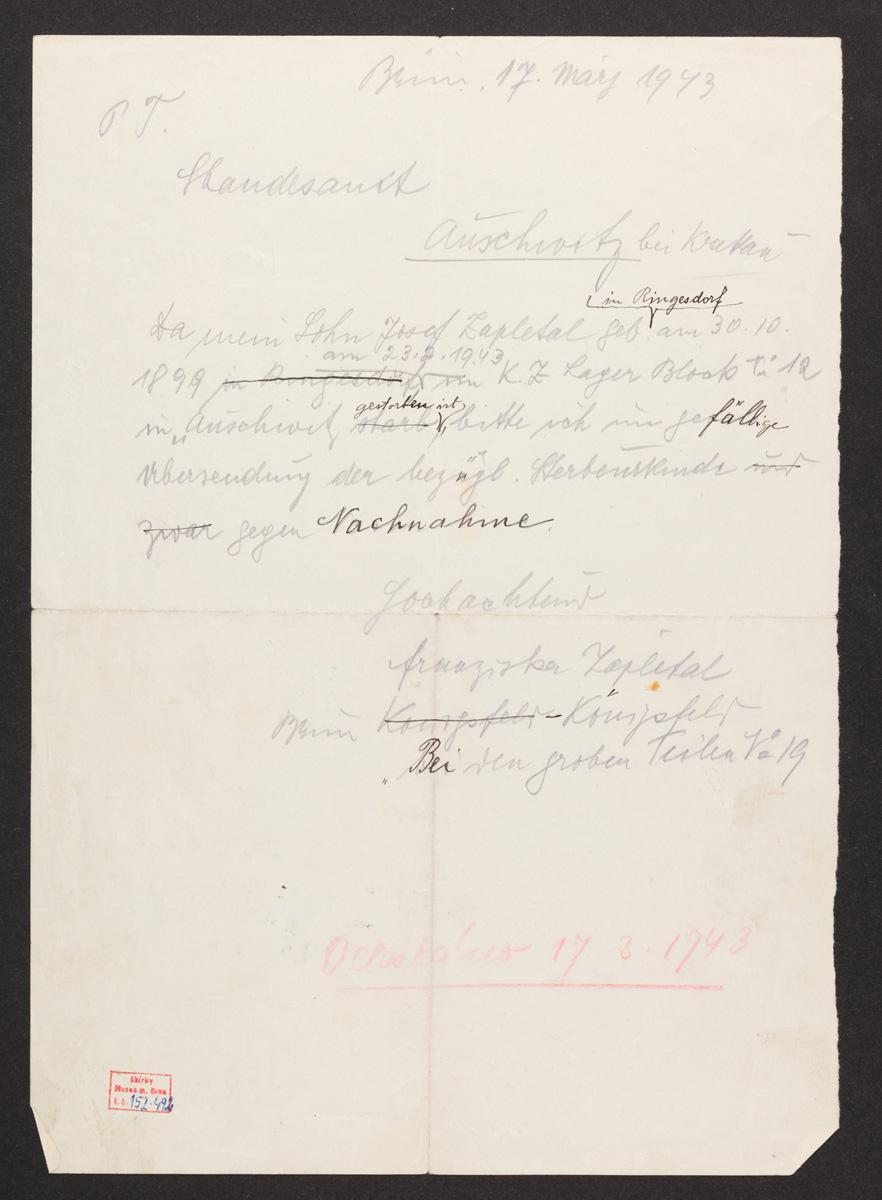 Brünn, 17. März 1943
P T.
Standesamt
Auschwitz bei Krakau
in Ringesdorf
Da mein Sohn Josef Zapletal geb. am 30.10.
am 23.2.1943
1899 in Ringesdorf im K.Z Lager Block No 12
gestorben ist,
in „Auschwitz starb, bitte ich um gefällige
Übersendung der bezügl. Sterbeurkunde und
zwar gegen Nachnahme.
Hochachtend
Franziska Zapletal
Brünn Königsfeld - Königsfeld
„Bei den groben Teilen No 19
Odesláno 17 3. 1943
Sbírky
Musea m. Brna
I. č.